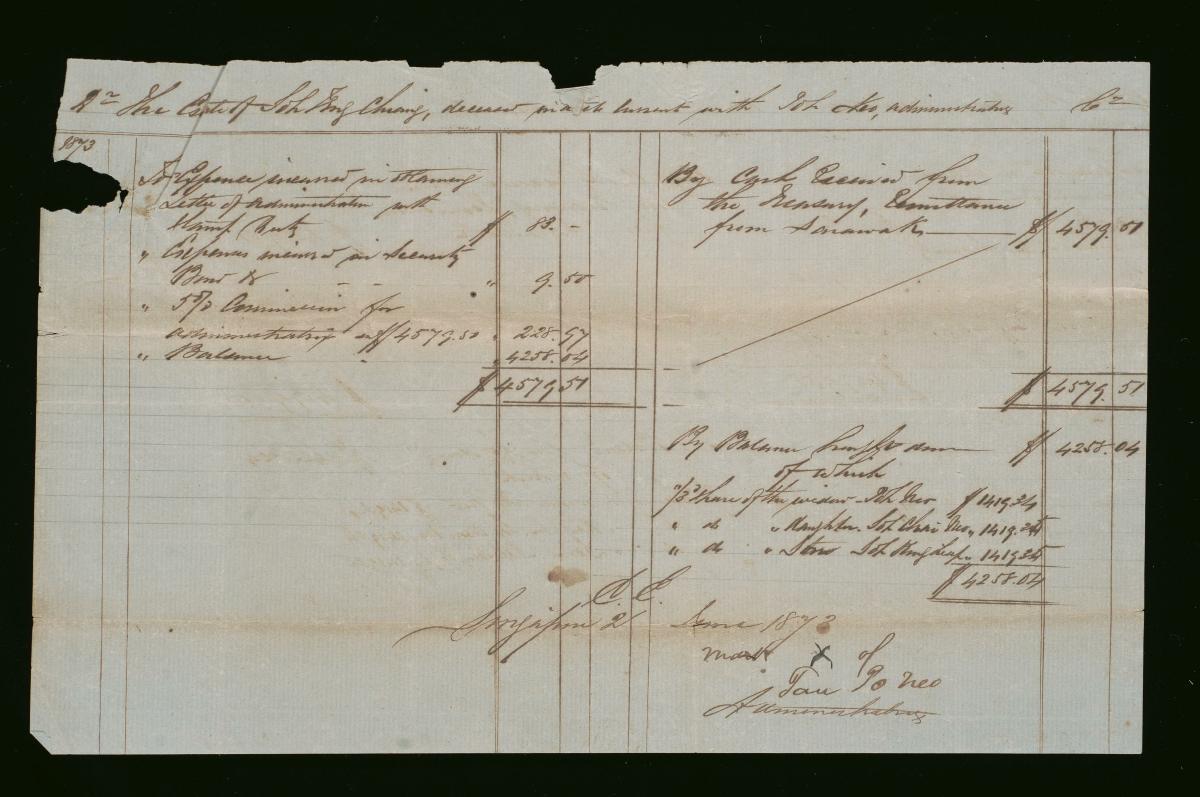 Dr The Estate of Soh Eng Chiang, deceased in a/c Current with Poh Neo, Administratrix Cr
1873
To Expence incurred in obtaining
Letter of Administration with
Stamp $ 83. -
" Expenses incurred in Security
Bond & - - " 9. 50
" 5 % Commission for
administratrix on $ 4579.50 " 228. 97
" Balance " " 4258. 04
$ 4579. 51
By Cash Received from
the Treasury, Remittance
from Sarawak $ 4579. 51
$ 4579. 51
By Balance down $ 4258. 04
of which
1/3 share of the widow Poh Neo $ 1419.34
" do " daughter Soh Neo " 1419.35
" do " Soh " 1419.35
$ 4258.04
E. E.
Singapore 2 June 1873
mark X of
Tan Po Neo
Administratrix